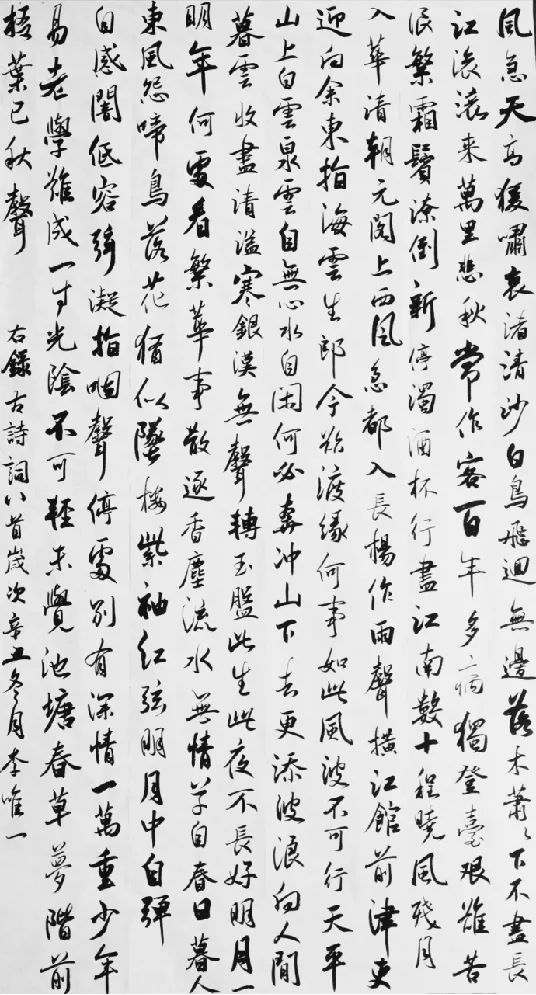 風急天高猨嘯哀渚清沙白鳥飛迴無邊落木蕭〻下不盡長
江滚滚來萬里悲秋常作客百年多病獨登臺艱難苦
恨繁霜鬢潦倒新停濁酒杯行盡江南數十程曉風殘月
入華清朝元閣上西風急都入長楊作雨聲橫江館前津吏
迎向余東指海雲生郎今欲渡緣何事如此風波不可行天平
山上白雲泉雲自無心水自閑何必奔冲山下去更添波浪向人間
暮雲收盡清溢寒銀漢無聲轉玉盤此生此夜不長好明月
明年何處看繁華事散逐香塵流水無情草自春日暮
東風怨啼鳥落花猶似墜樓紫袖紅弦明月中自彈
自感闇低容弦凝指咽聲停處别有深情一萬重少年
易老學難成一寸光陰不可輕未覺池塘春草夢階前
梧葉已秋聲 右錄古詩詞八首歲次辛丑冬月李唯一